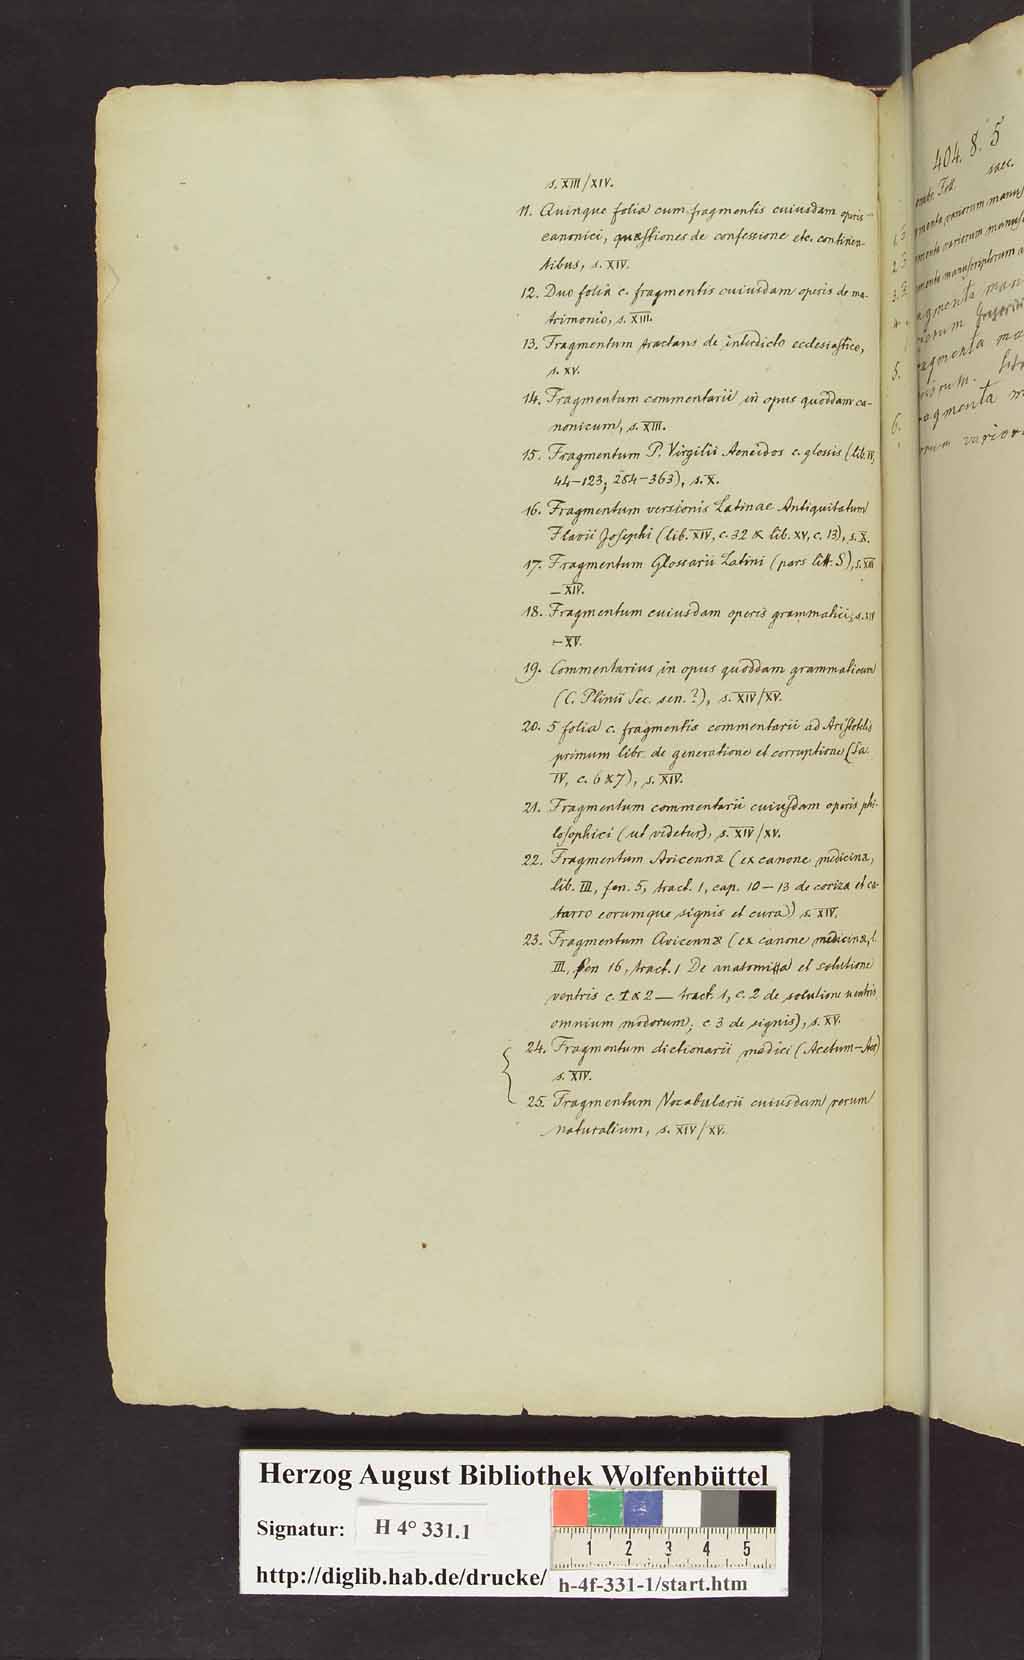 s. XIII/XIV.
11. Quinque folia cum fragmentis cuiusdam operis
canonici, quæstiones de confessione etc. continen-
tibus, s. XIV.
12. Duo folia c. fragmentis cuiusdam operis de ma-
trimonio, s. XIII.
13. Fragmentum tractans de interdicto ecclesiastico,
s. XV.
14. Fragmentum commentarii in opus quoddam ca-
nonicum, s. XIII.
15. Fragmentum P. Virgilii Aeneidos c. glossis (lib. IV,
44–123; 284–363), s. X.
16. Fragmentum versionis Latinae Antiquitatum
Flavii Josephi (lib. XIV, c. 32 & lib. XV, c. 13), s. X.
17. Fragmentum Glossarii Latini (pars litt. S), s. XIII
– XIV.
18. Fragmentum cuiusdam operis grammatici, s. XIV
– XV.
19. Commentarius in opus quoddam grammaticum
(C. Plinii Sec. sen.?), s. XIV/XV.
20. 5 folia c. fragmentis commentarii ad Aristotelis
primum libr. de generatione et corruptione
IV, c. 6 & 7), s. XIV.
21. Fragmentum commentarii cuiusdam operis phi-
losophici (ut videtur), s. XIV/XV.
22. Fragmentum Avicennæ (ex canone medicinæ,
lib. III, fen. 5, tract. 1, cap. 10–13 de coriza et ca-
tarro eorumque signis et cura) s. XIV.
23. Fragmentum Avicennæ (ex canone medicinæ, l.
III, fen 16, tract. 1 De anatomia et solutione
ventris c. 1 & 2 — tract. 1, c. 2 de solutione ventris
omnium modorum; c. 3 de signis), s. XV.
24. Fragmentum dictionarii medici (Acetum–
s. XIV.
25. Fragmentum Vocabularii cuiusdam rerum
naturalium, s. XIV/XV.
404. 8. 5
saec.
Foll.
variorum manus
variorum manus
manuscriptorum
1.
2.
3.
4.
5.
6.
Herzog August Bibliothek Wolfenbüttel
Signatur: H 4° 331.1
http://diglib.hab.de/drucke/ h-4f-331-1/start.htm
1 2 3 4 5